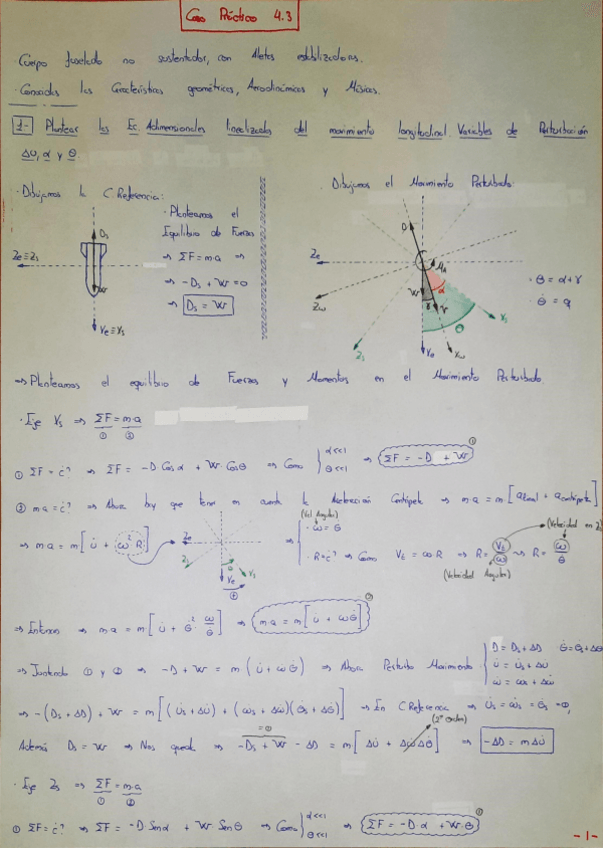 Caso Práctico 4.3
· Cuerpo fuselado no sustentador, con Aletas estabilizadoras.
· Conocidas las Características geométricas, Aerodinámicas y Másicas.
1- Plantear las Ec. Adimensionales linealizadas del movimiento longitudinal. Variables de Perturbación
Δu, α y θ.
· Dibujamos la C. Referencia:
Ds
Ze≡Zs
W
Xe≡Xs
· Planteamos el
Equilibrio de Fuerzas
⇒ ΣF=m·a ⇒
⇒ -Ds + W = 0
⇒ Ds = W
· Dibujamos el Movimiento Perturbado:
D
Ze
MA
α
W
γ
V
θ
Zw
Zs
Xe
Xw
Xs
· θ = α+γ
· θ̇ = q
⇒ Planteamos el equilibrio de Fuerzas y Momentos en el Movimiento Perturbado
· Eje Xs ⇒ ΣF = m·a
① ②
① ΣF = ¿? ⇒ ΣF = -D Cosα + W·Cosθ ⇒ Como { α<<1 θ<<1 ⇒ ΣF = -D + W ①
② m·a = ¿? ⇒ Ahora hay que tener en cuenta la Aceleración Centrípeta ⇒ m·a = m[alineal + acentrípeta]
⇒ m·a = m[u̇ + ω² R]
Ze
Zs
θ
Xe
Xs
(Vel. Angular)
· ω = θ̇
(Velocidad en Z)
· R=¿? ⇒ Como Vt = ω R ⇒ R = Vt/ω ⇒ R = ω/θ̇
(Velocidad Angular)
⇒ Entonces ⇒ m·a = m[u̇ + θ̇² ω/θ̇] ⇒ m·a = m[u̇ + ωθ̇] ②
⇒ Juntando ① y ② ⇒ -D + W = m(u̇ + ωθ̇) ⇒ Ahora Perturbo Movimiento { D = Ds + ΔD θ̇ = θ̇s + Δθ̇
u̇ = u̇s + Δu̇
ω = ωs + Δω
⇒ -(Ds + ΔD) + W = m[(u̇s + Δu̇) + (ωs + Δω)(θ̇s + Δθ̇)] ⇒ En C Referencia ⇒ u̇s = ωs = θ̇s = 0,
(2º Orden)
Además Ds = W ⇒ Nos queda ⇒ -Ds + W - ΔD = m[Δu̇ + ΔωΔθ̇] ⇒ -ΔD = mΔu̇
· Eje Zs ⇒ ΣF = m·a
① ②
① ΣF = ¿? ⇒ ΣF = -D Senα + W Senθ ⇒ Como { α<<1 θ<<1 ⇒ ΣF = -D·α + W·θ ①
-1-